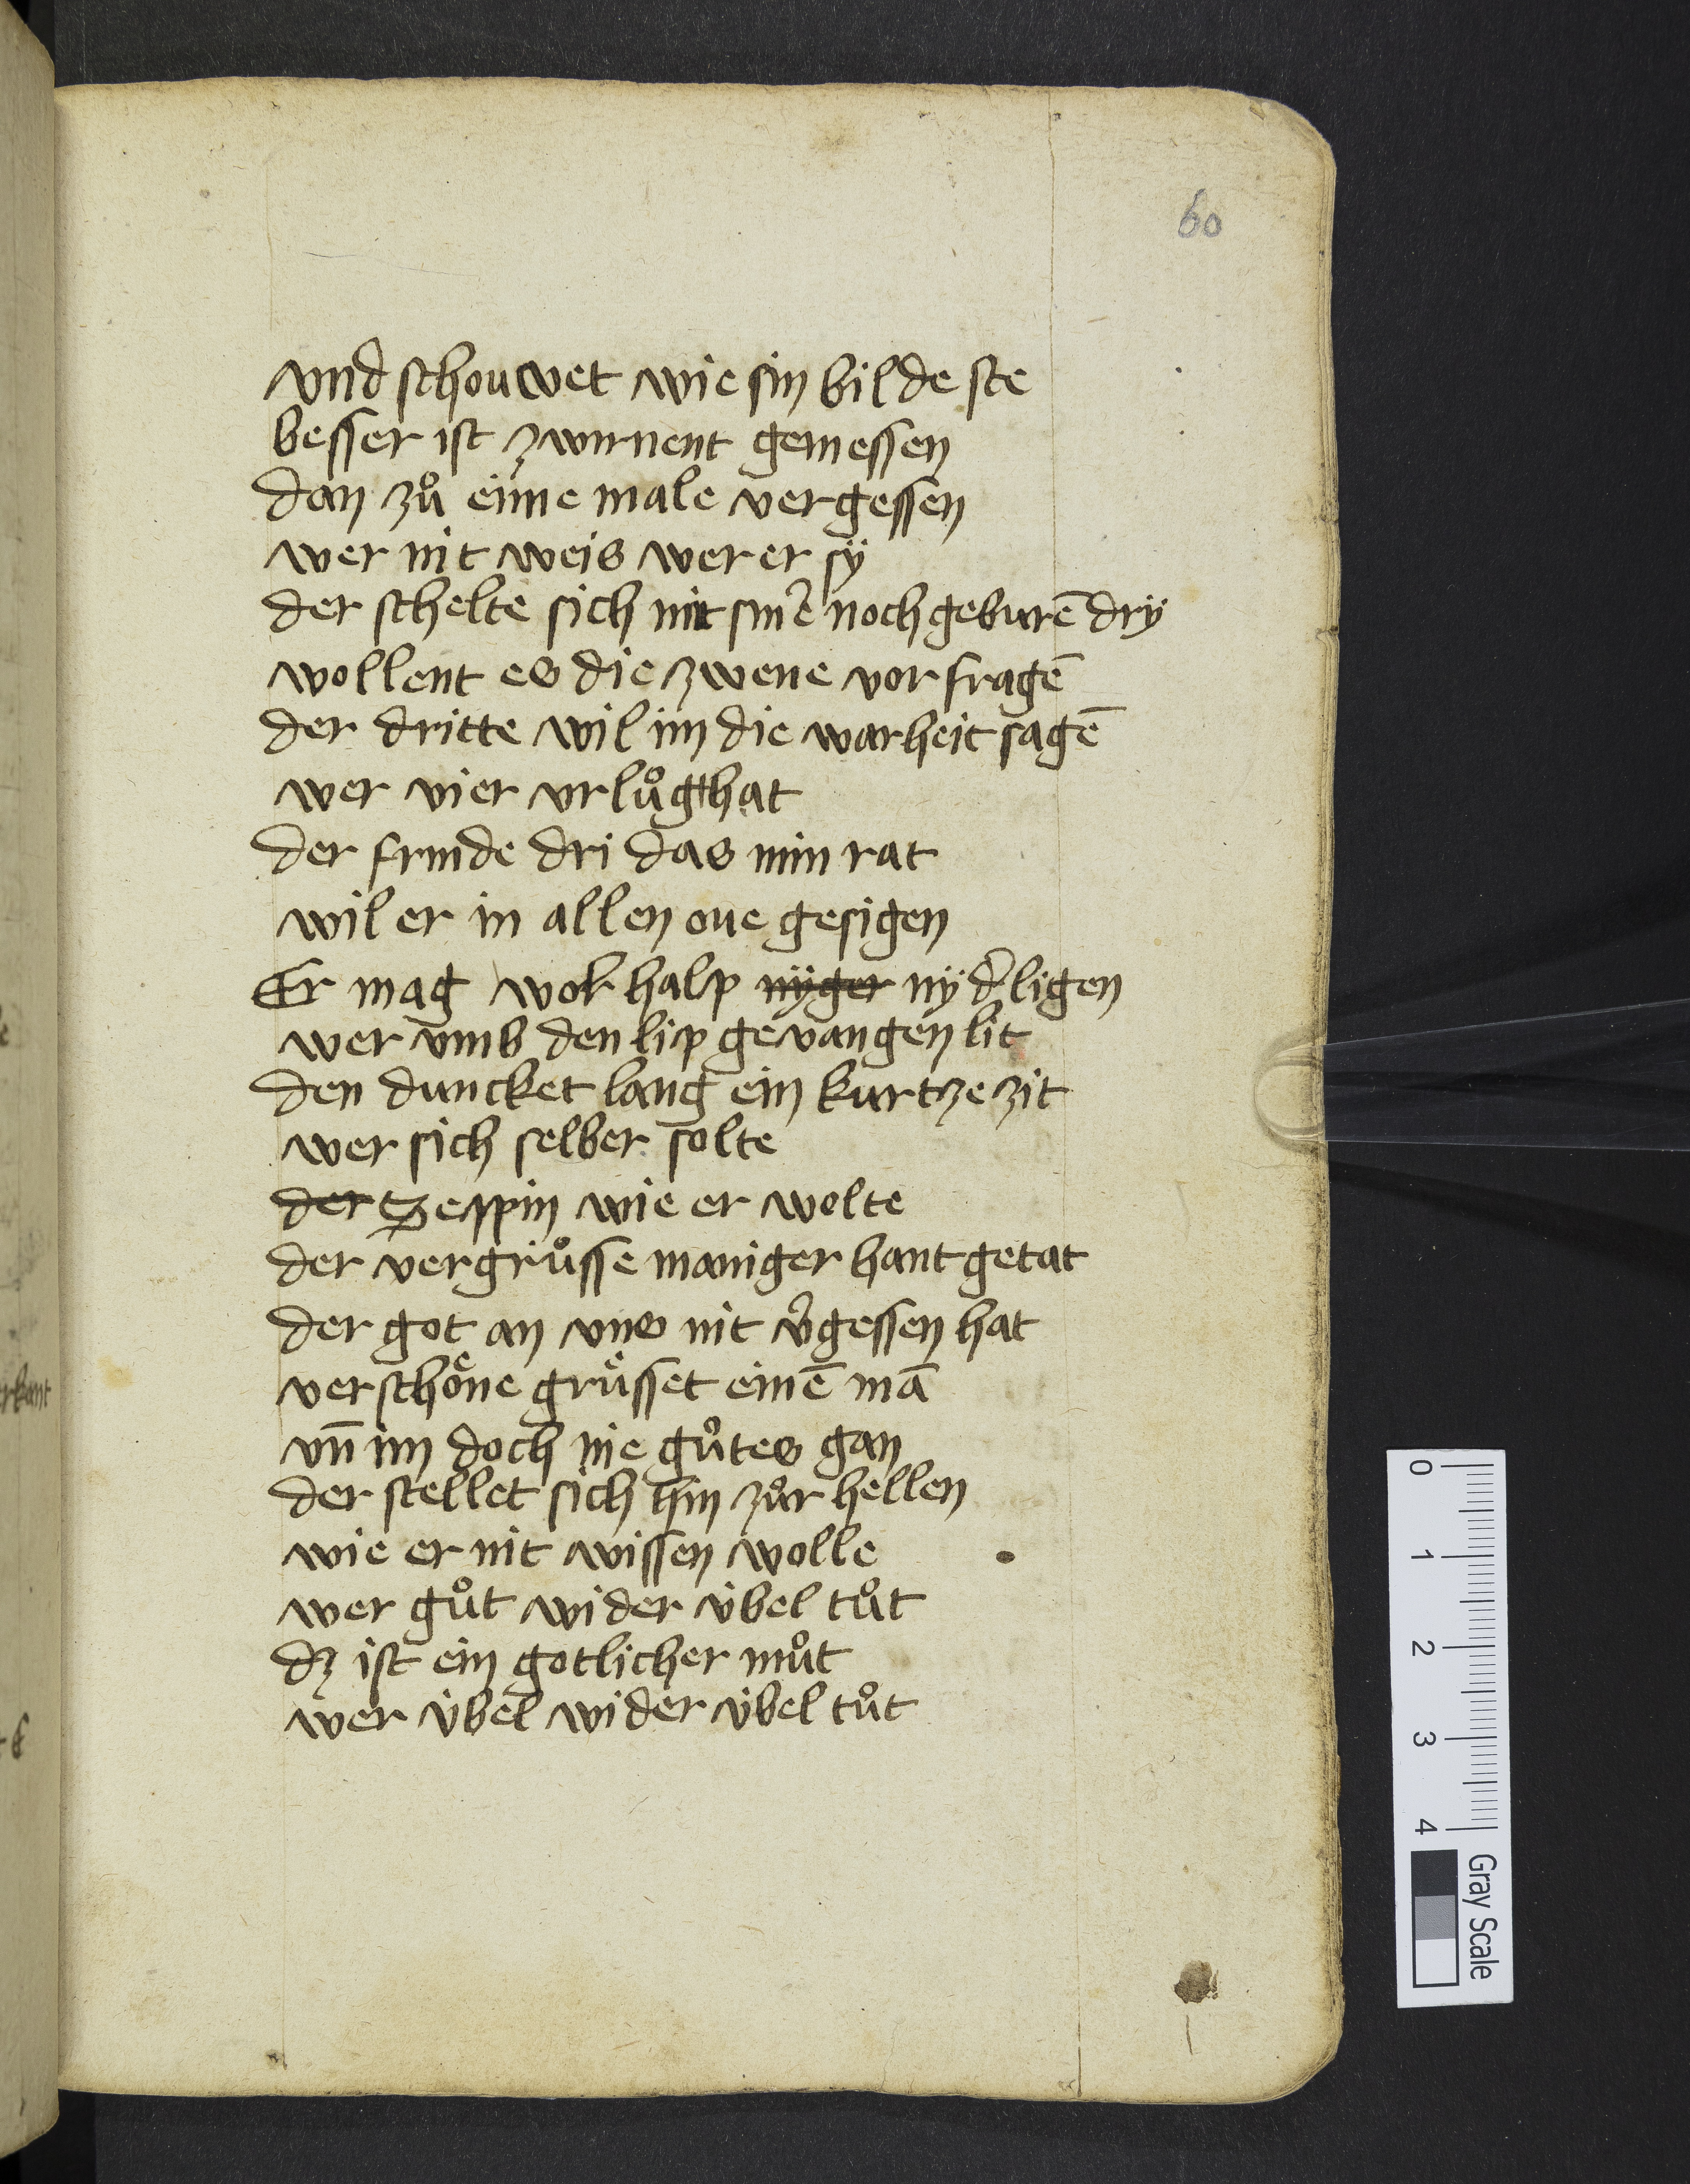 60
vnd schouwet wie sin bilde ste
besser ist zwurnent gemessen
dan zuͦ eime male vergessen
wer nit weis wer er sÿ
der schelte sich mit sin͛e nochgeburē drÿ
wollent es die zwene vor fragē
der dritte wil im die warheit sagē
wer vier vrluͦg hat
der frunde dri das min rat
wil er in allen oue gesigen
Er mag wol halp nÿger nÿd͛ligen
wer vmb den lip gevangen lit
den duncket lang ein kurtze zit
wer sich selber solte
der tzespin wie er wolte
der vergruͦsse maniger hant getat
der got an vns nit v͛gessen hat
ver schoͤne gruͤsset einē mā
vn̄ im doch nie guͦtes gan
der stellet sich hin zuͦr hellen
wie er nit wissen wolle
wer guͦt wider v̇bel tuͦt
dz ist ein gotlicher muͦt
wer v̇bel wider v̇bel tuͦt
rkant
0
1
2
3
4
Gray Scale